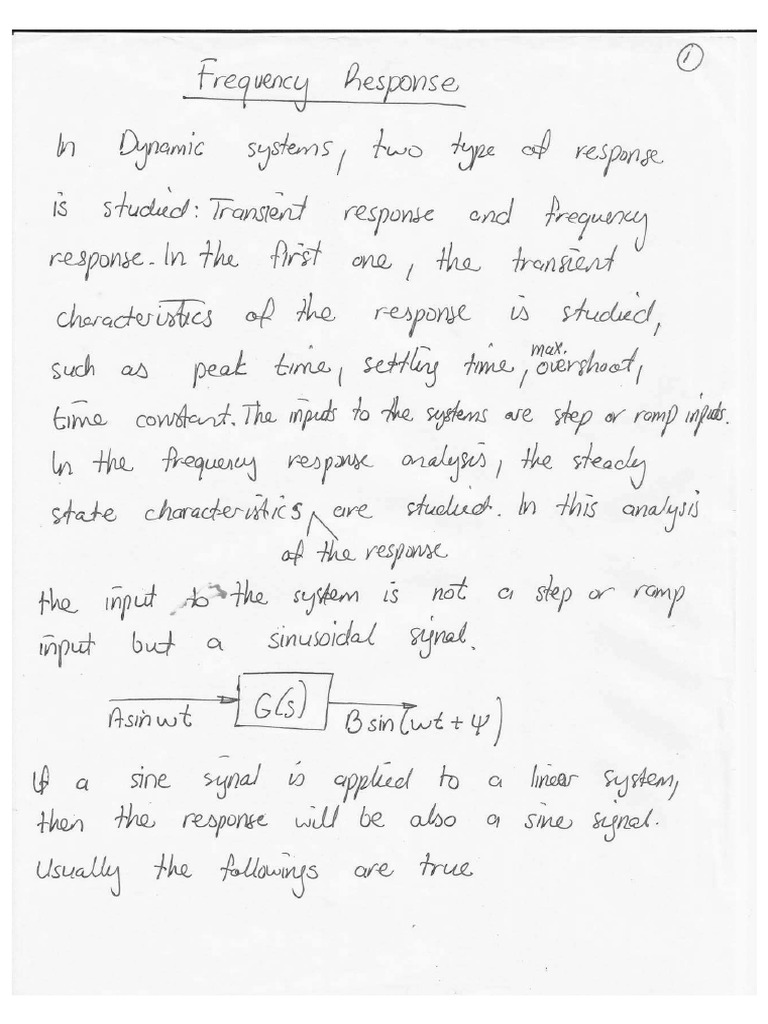 1
Frequency Response
In Dynamic systems, two type of response
is studied: Transient response and frequency
response. In the first one, the transient
characteristics of the response is studied,
such as peak time, settling time, max. overshoot,
time constant. The inputs to the systems are step or ramp inputs.
In the frequency response analysis, the steady
state characteristics of the response are studied. In this analysis
the input to the system is not a step or ramp
input but a sinusoidal signal.
A sin wt G(s) B sin(wt + ψ)
If a sine signal is applied to a linear system,
then the response will be also a sine signal.
Usually the followings are true